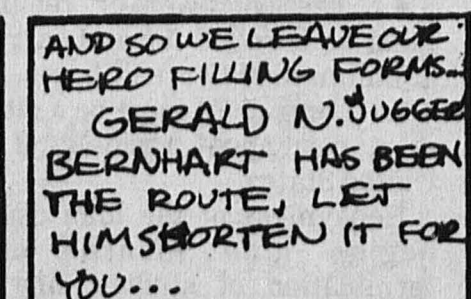 AND SO WE LEAVE OUR
HERO FILLING FORMS...
GERALD N. JUGGER
BERNHART HAS BEEN
THE ROUTE, LET
HIM SHORTEN IT FOR
YOU...